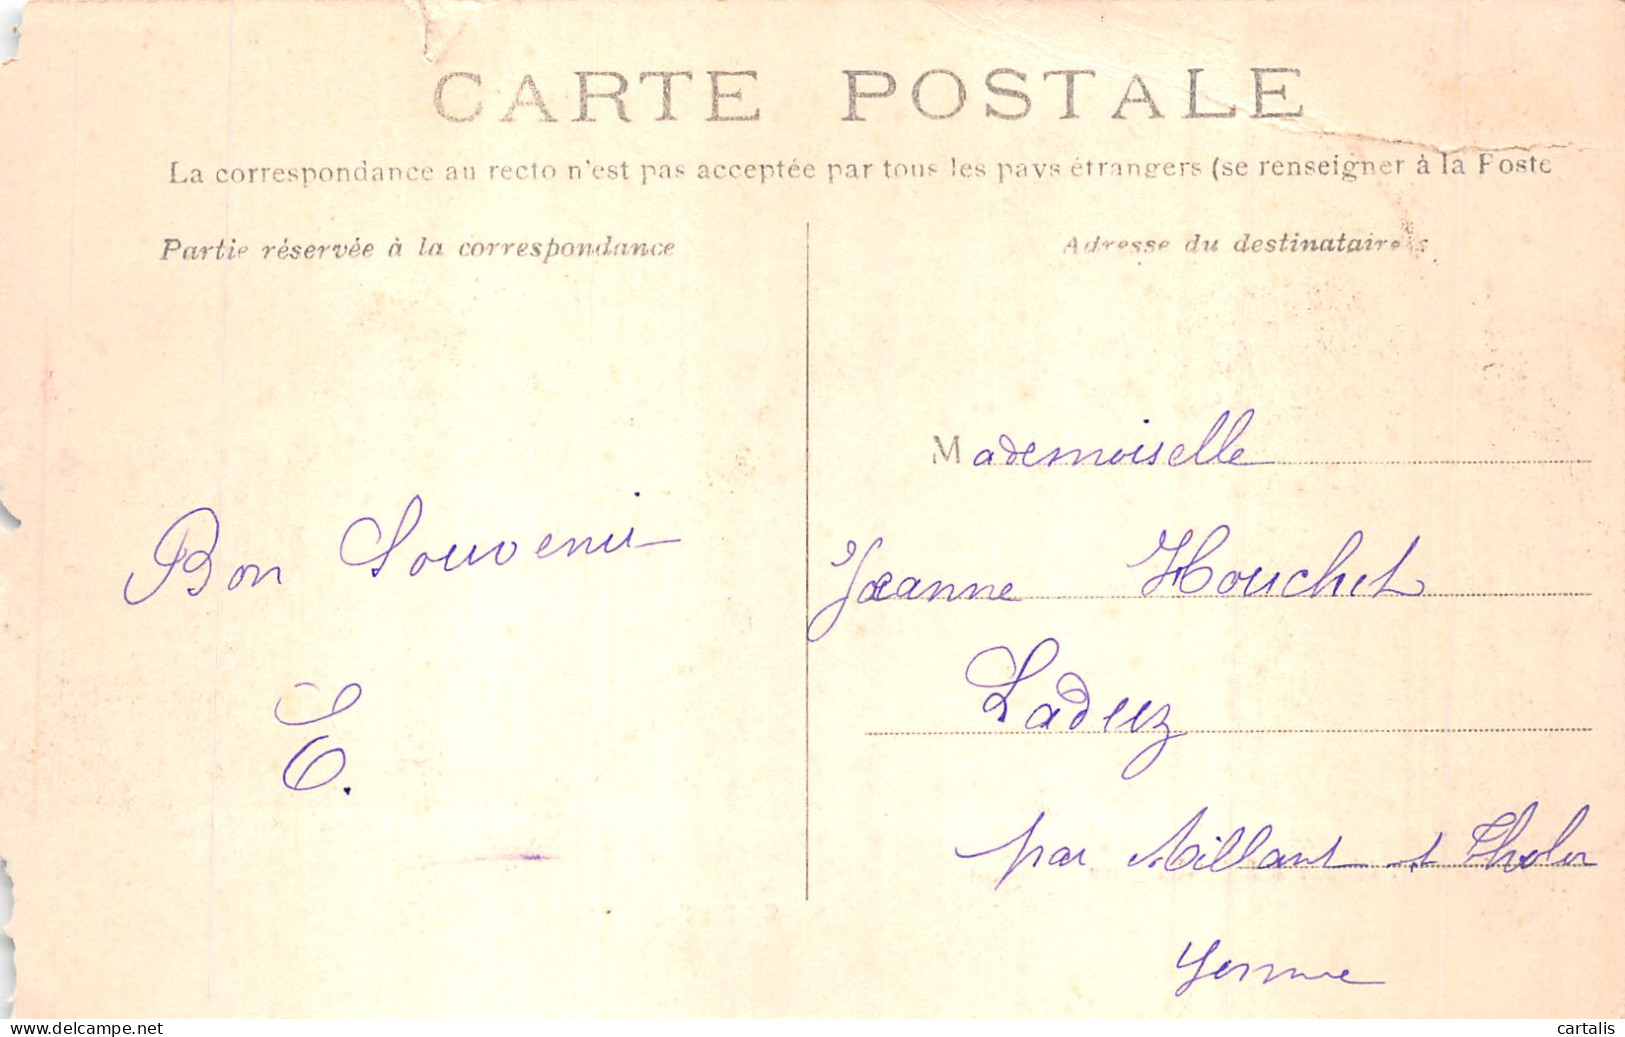 CARTE POSTALE
La correspondance au recto n'est pas acceptée par tous les pays étrangers (se renseigner à la Poste
Partie réservée à la correspondance
Adresse du destinataire
Bon Souvenir
E.
Mademoiselle
Jeanne Houchet
Laduz
par Aillant s Tholon
Yonne
www.delcampe.net
cartalis